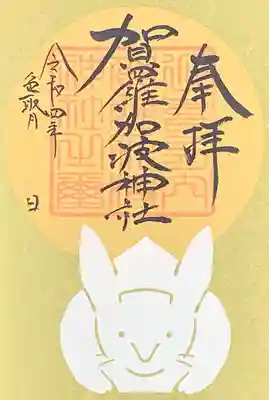 奉拝
賀羅加波神社
令和四年
色取月
日